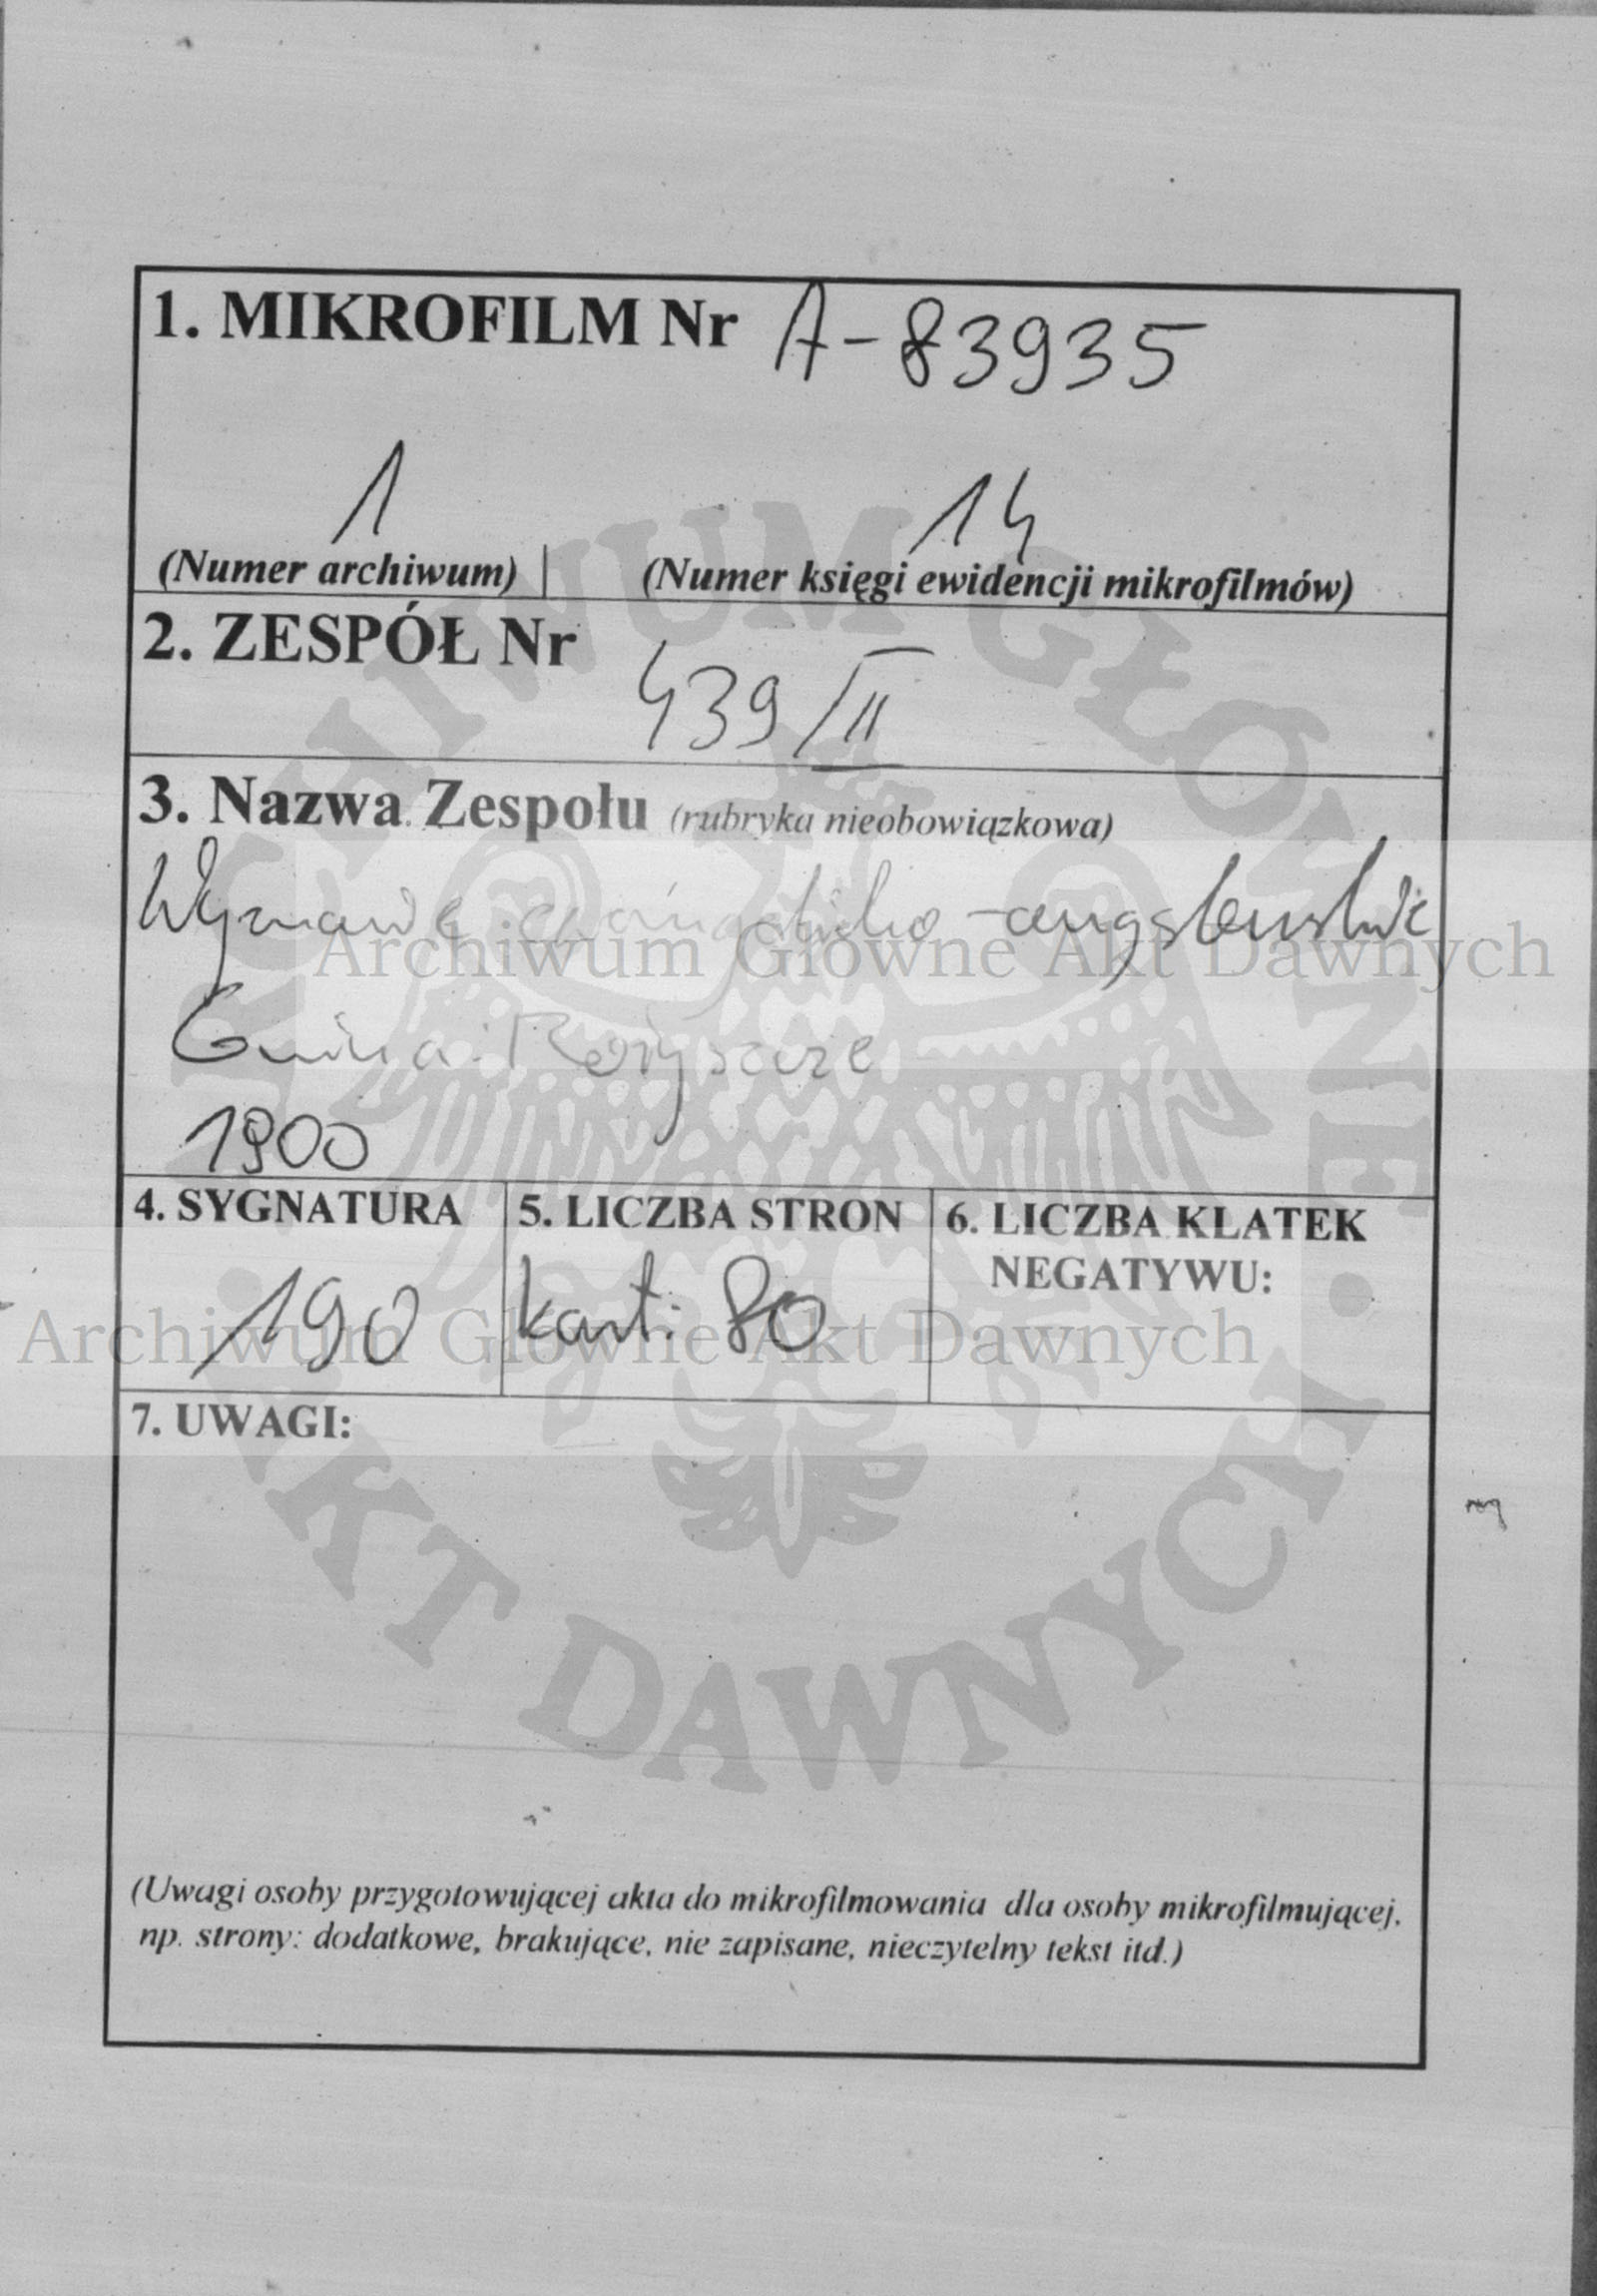 1. MIKROFILM Nr A-83935
1 14
(Numer archiwum) (Numer księgi ewidencji mikrofilmów)
2. ZESPÓŁ Nr
439/II
3. Nazwa Zespołu (rubryka nieobowiązkowa)
Wyznanie ewangelicko-augsburskie
Gmina Rożyszcze
1900
4. SYGNATURA 5. LICZBA STRON 6. LICZBA KLATEK
NEGATYWU:
190 kart: 80
7. UWAGI:
(Uwagi osoby przygotowującej akta do mikrofilmowania dla osoby mikrofilmującej,
np. strony: dodatkowe, brakujące, nie zapisane, nieczytelny tekst itd.)
ARCHIWUM GŁÓWNE AKT DAWNYCH
Archiwum Główne Akt Dawnych
Archiwum Główne Akt Dawnych